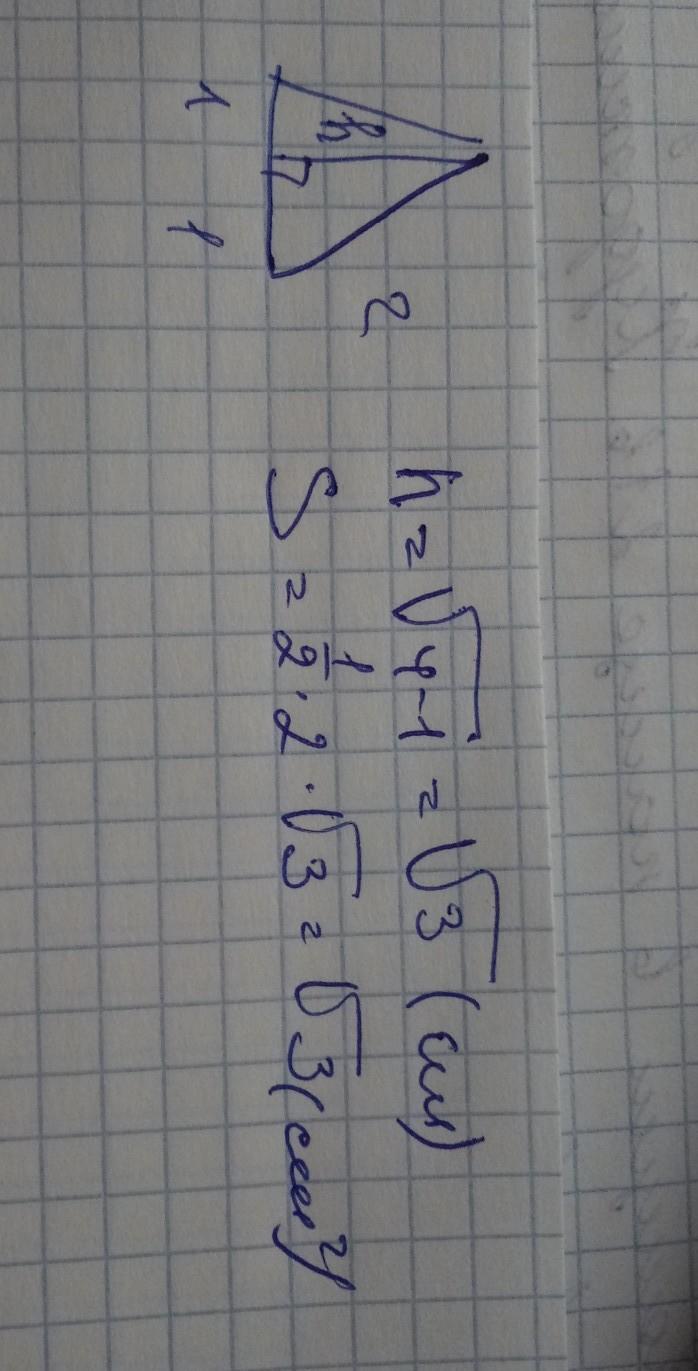 h
2
1 1
h = √4-1 = √3 (см)
S = 1/2 · 2 · √3 = √3 (см²)